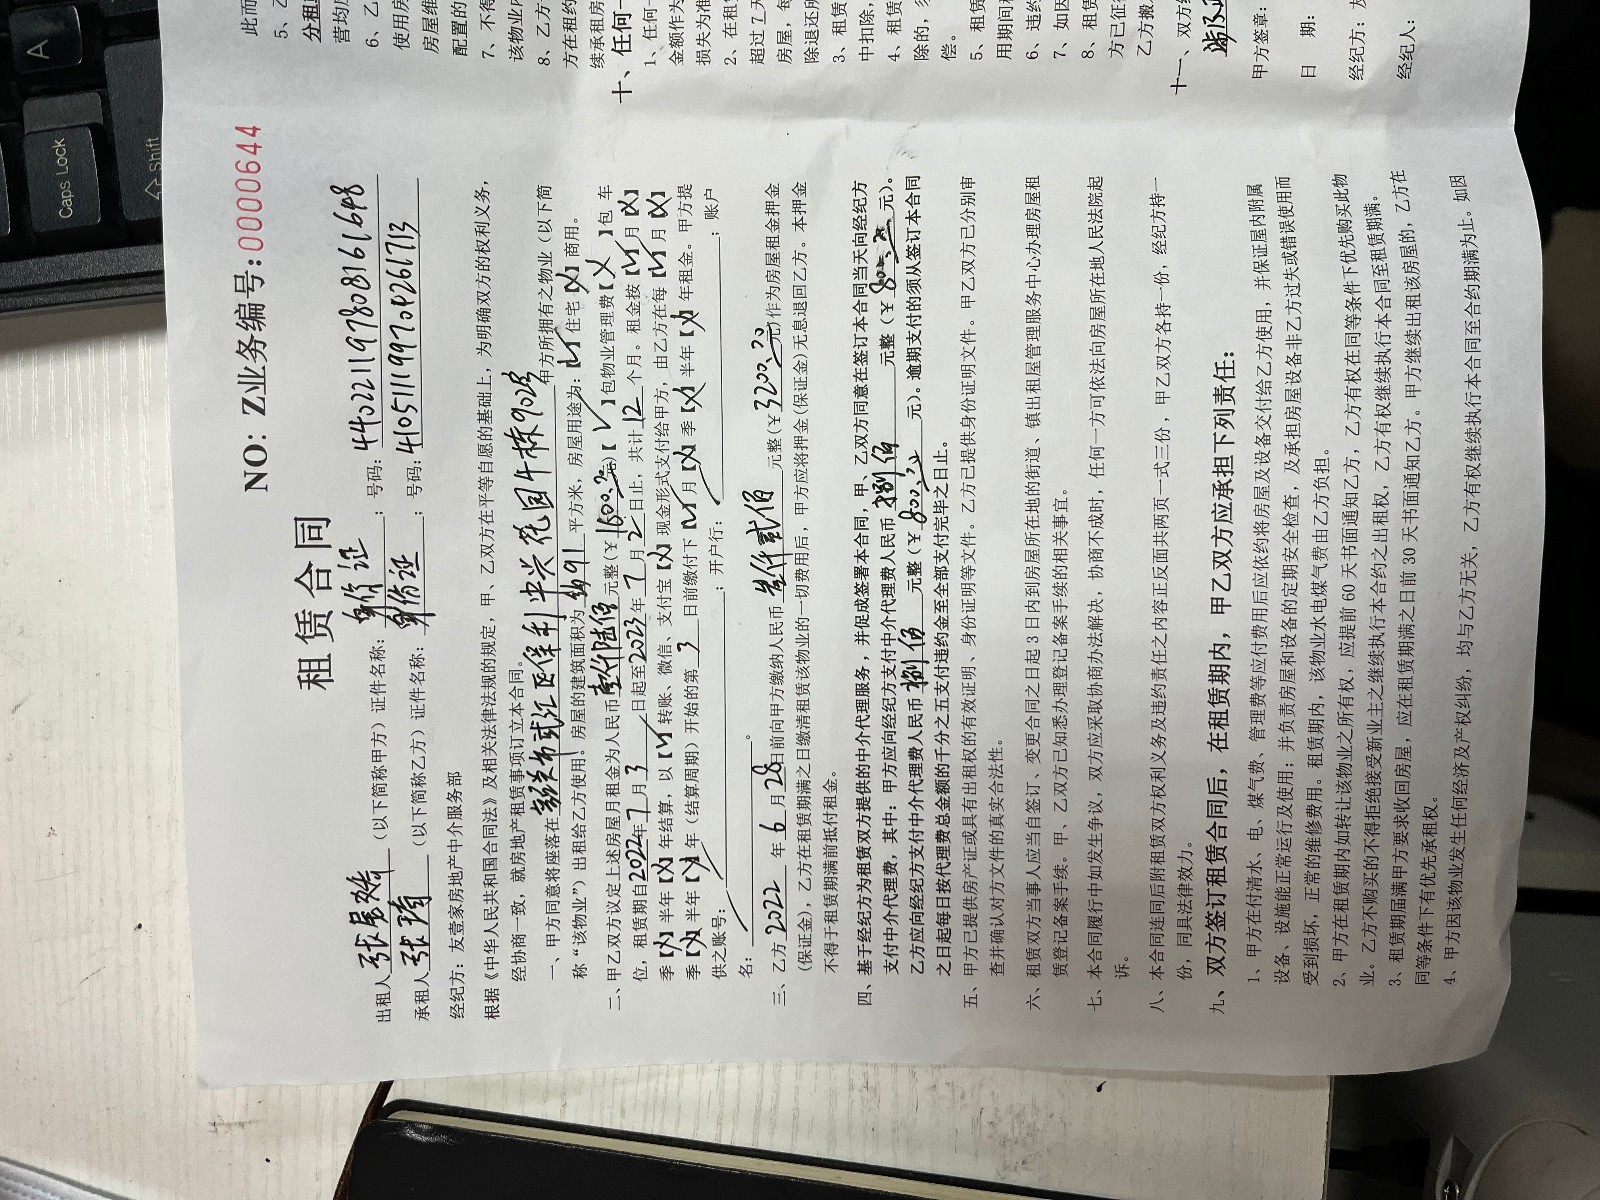 租赁合同
NO: Z业务编号:0000644
出租人 张 （以下简称甲方）证件名称: 身份证 ; 号码: 440221197808161648
承租人 张琦 （以下简称乙方）证件名称: 身份证 ; 号码: 410511199704261713
经纪方: 友壹家房地产中介服务部
根据《中华人民共和国合同法》及相关法律法规的规定，甲、乙双方在平等自愿的基础上，为明确双方的权利义务，
经协商一致，就房地产租赁事项订立本合同。
一、甲方同意将座落在 韶关市武江区保利中兴花园 栋902房 甲方所拥有之物业（以下简
称“该物业”）出租给乙方使用。房屋的建筑面积为 91 平方米，房屋用途为:【✓】住宅【X】商用。
二、甲乙双方议定上述房屋月租金为人民币 壹仟陆佰 元整（¥1600 元）【✓】包物业管理费【X】包 车
位，租赁期自2022年7月3日起至2023年7月2日止，共计12个月。租金按【✓】月【X】
季【X】半年【X】年结算，以【✓】转账、微信、支付宝【X】现金形式支付给甲方，由乙方在每【✓】月【X】
季【X】半年【X】年（结算周期）开始的第 3 日前缴付下【✓】月【X】季【X】半年【X】年租金。甲方提
供之账号: ; 开户行: ; 账户
名: 。
三、乙方 2022 年 6 月 28 日前向甲方缴纳人民币 叁仟贰佰 元整（¥3200 元）作为房屋租金押金
(保证金)，乙方在租赁期满之日缴清租赁该物业的一切费用后，甲方应将押金(保证金)无息退回乙方。本押金
不得于租赁期满前抵付租金。
四、基于经纪方为租赁双方提供的中介代理服务，并促成签署本合同，甲、乙双方同意在签订本合同当天向经纪方
支付中介代理费，其中: 甲方应向经纪方支付中介代理费人民币 捌佰 元整（¥ 800 元）。
乙方应向经纪方支付中介代理费人民币 捌佰 元整（¥ 800 元）。逾期支付的须从签订本合同
之日起每日按代理费总金额的千分之五支付违约金至全部支付完毕之日止。
五、甲方已提供房产证或具有出租权的有效证明、身份证明等文件。乙方已提供身份证明文件。甲乙双方已分别审
查并确认对方文件的真实合法性。
六、租赁双方当事人应当自签订、变更合同之日起 3 日内到房屋所在地的街道、镇出租屋管理服务中心办理房屋租
赁登记备案手续。甲、乙双方已知悉办理登记备案手续的相关事宜。
七、本合同履行中如发生争议，双方应采取协商办法解决，协商不成时，任何一方可依法向房屋所在地人民法院起
诉。
八、本合同连同后附租赁双方权利义务及违约责任之内容正反面共两页一式三份，甲乙双方各持一份，经纪方持一
份，同具法律效力。
九、双方签订租赁合同后，在租赁期内，甲乙双方应承担下列责任:
1、甲方在付清水、电、煤气费、管理费等应付费用后应依约将房屋及设备交付给乙方使用，并保证屋内附属
设备、设施能正常运行及使用; 并负责房屋和设备的定期安全检查，及承担房屋设备非乙方过失或错误使用而
受到损坏，正常的维修费用。租赁期内，该物业水电煤气费由乙方负担。
2、甲方在租赁期内如转让该物业之所有权，应提前 60 天书面通知乙方，乙方有权在同等条件下优先购买此物
业。乙方不购买的不得拒绝接受新业主之继续执行本合约之出租权，乙方有权继续执行本合同至租赁期满。
3、租赁期届满甲方要求收回房屋，应在租赁期满之日前 30 天书面通知乙方。甲方继续出租该房屋的，乙方在
同等条件下有优先承租权。
4、甲方因该物业发生任何经济及产权纠纷，均与乙方无关，乙方有权继续执行本合同至合约期满为止。如因
此而
5、乙
分租
营均
6、乙
使用房
房屋维
配置的
7、不得
该物业内
8、乙方
方在租约
续承租房
十、任何一
1、任何一
金额作为
损失为准
2、在租
超过 7 天
房屋，每
除退还所
3、租赁
中扣除，
4、租赁
除的，
偿。
5、租赁
用期间
6、违约
7、如因
8、租赁
方已征
乙方搬
十一、双方
甲方签章:
日 期:
经纪方:
经纪人:
A
Caps Lock
Shift